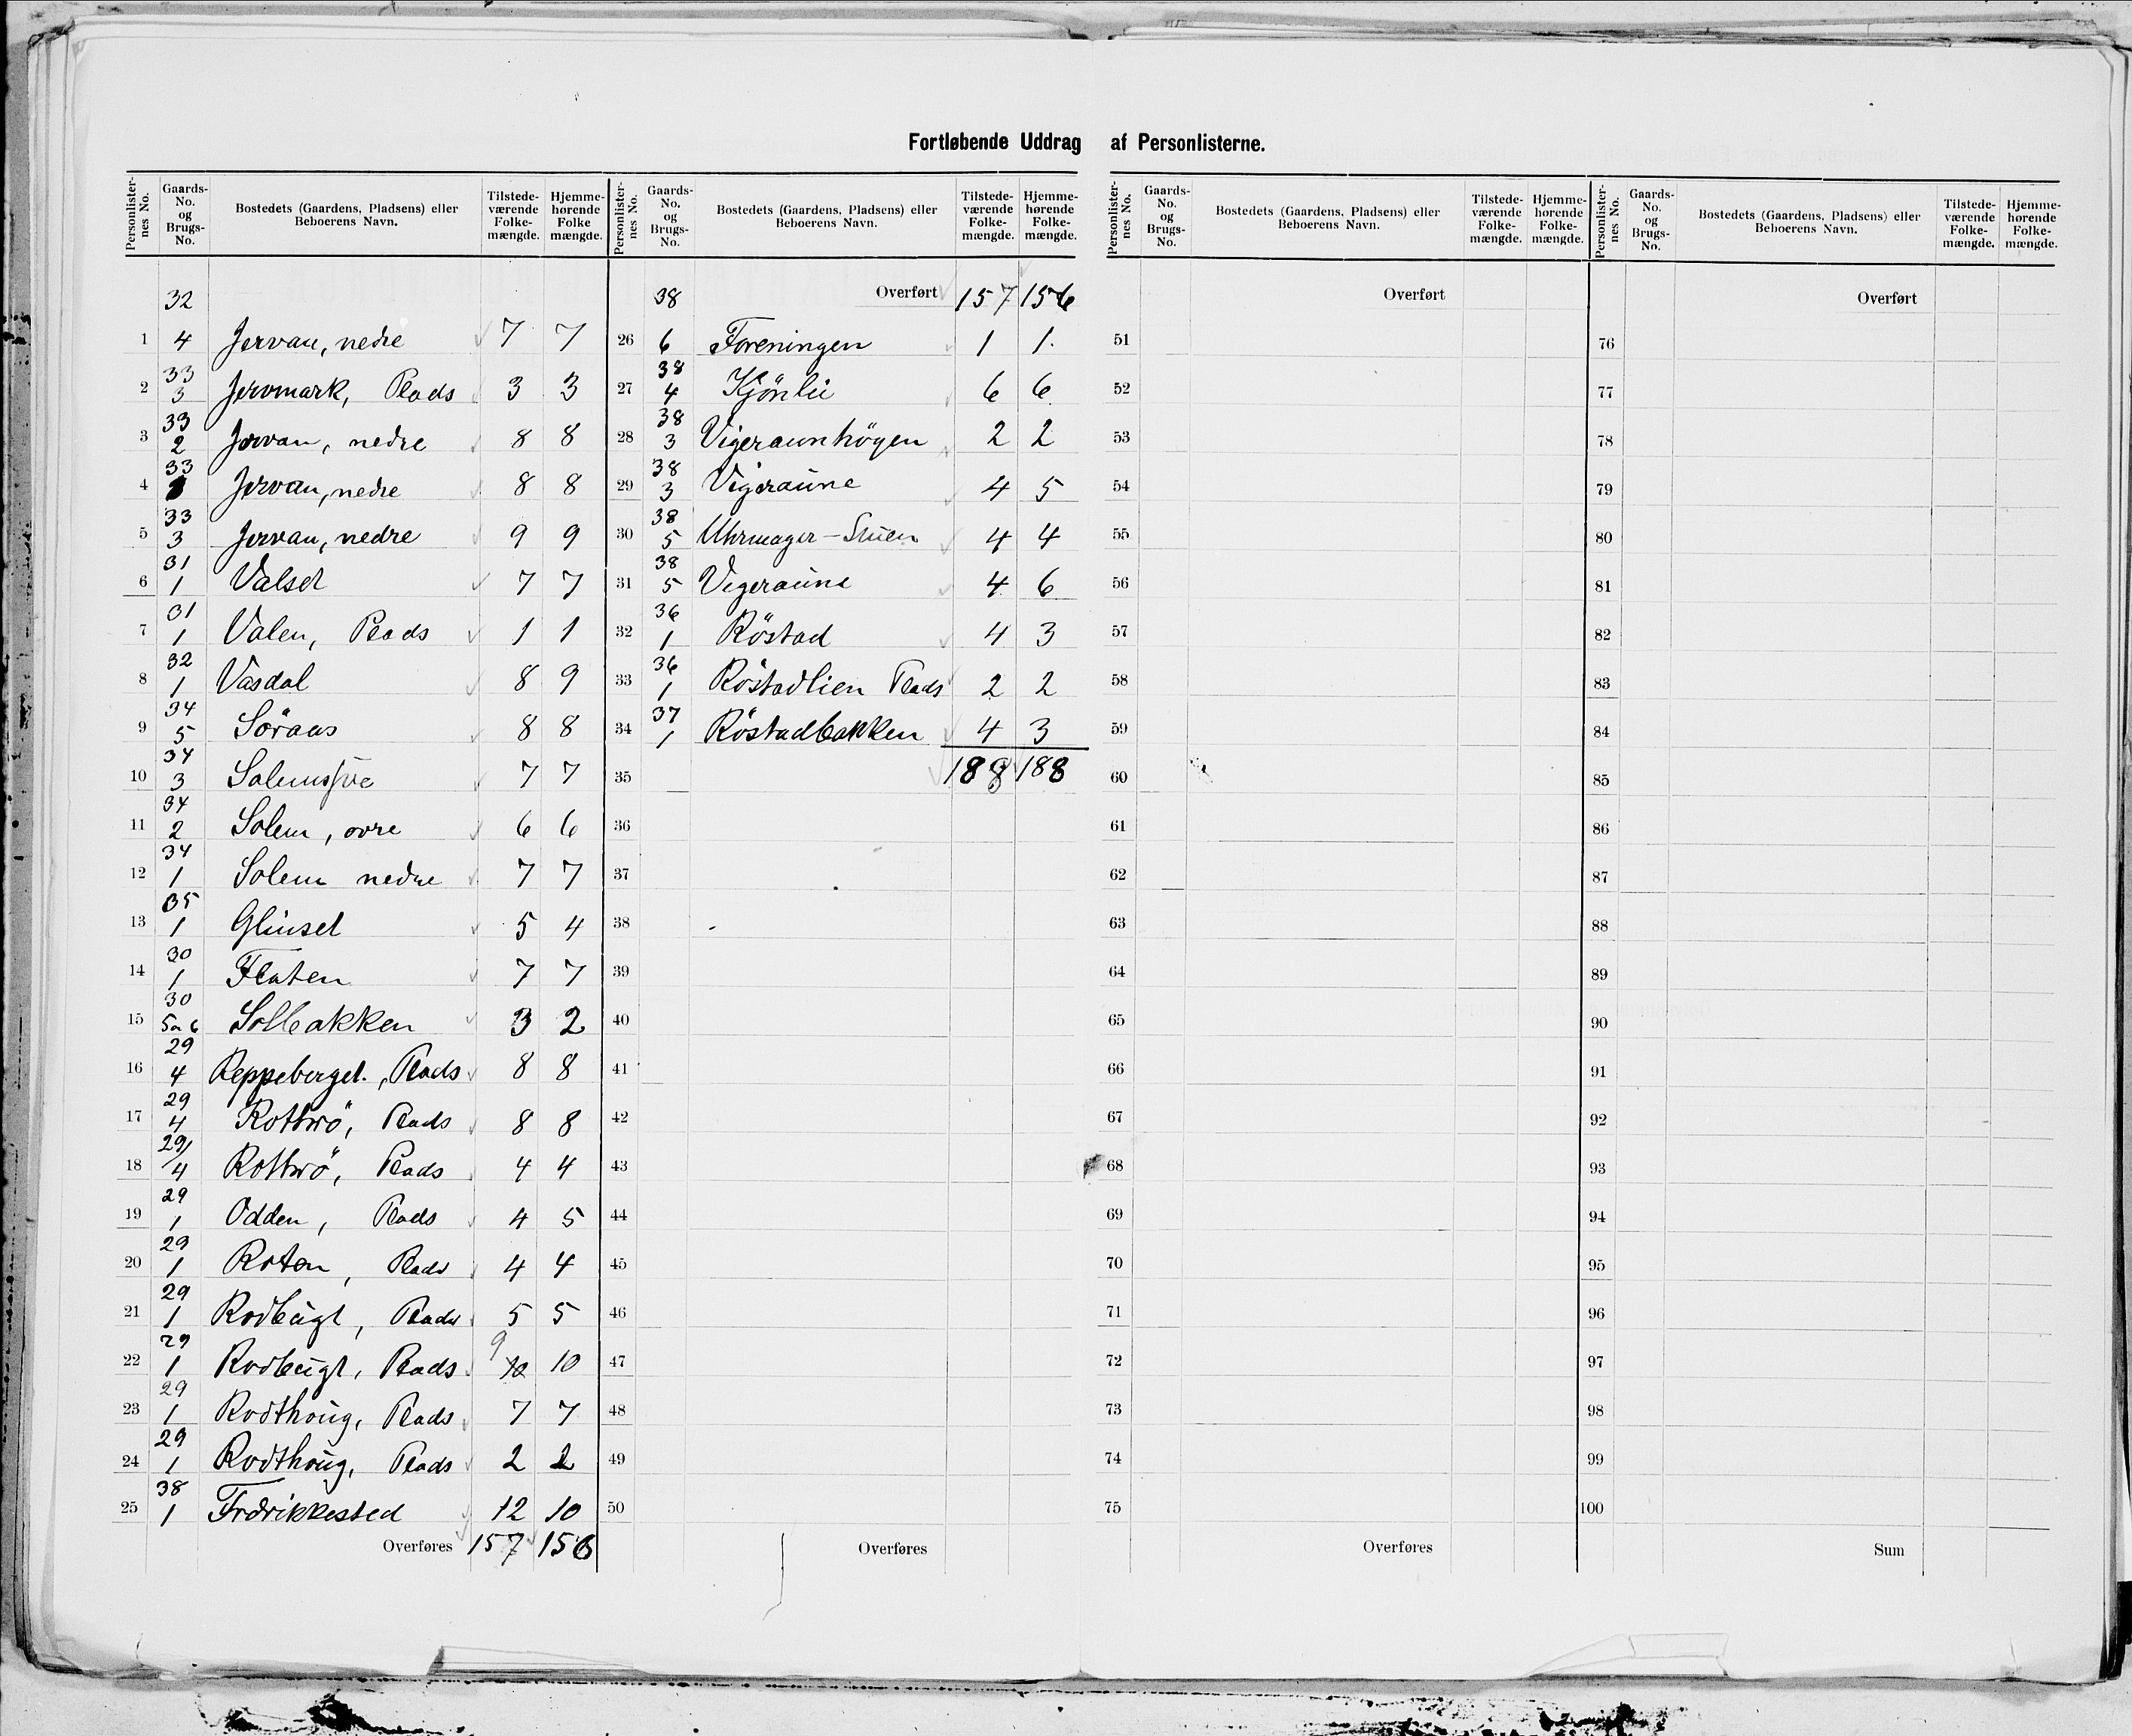 Fortløbende Uddrag af Personlisterne.
Personlisternes No. | Gaards-No. og Brugs-No. | Bostedets (Gaardens, Pladsens) eller Beboerens Navn. | Tilstedeværende Folkemængde. | Hjemmehørende Folkemængde.
1 | 32 4 | Jervan, nedre | 7 | 7
2 | 33 3 | Jervmark, Plads | 3 | 3
3 | 33 2 | Jervan, nedre | 8 | 8
4 | 33 | Jervan, nedre | 8 | 8
5 | 33 3 | Jervan, nedre | 9 | 9
6 | 31 1 | Valset | 7 | 7
7 | 31 1 | Valen, Plads | 1 | 1
8 | 32 1 | Vasdal | 8 | 9
9 | 34 5 | Söraas | 8 | 8
10 | 34 3 | | 7 | 7
11 | 34 2 | Solem, ovre | 6 | 6
12 | 34 1 | Solem nedre | 7 | 7
13 | 35 1 | Glinset | 5 | 4
14 | 30 1 | Flaten | 7 | 7
15 | 30 5 a 6 | Solbakken | 3 | 2
16 | 29 4 | Reppeberget., Plads | 8 | 8
17 | 29 4 | Rottrö, Plads | 8 | 8
18 | 29/4 | Rottrö, Plads | 4 | 4
19 | 29 1 | Odden, Plads | 4 | 5
20 | 29 1 | Roten, Plads | 4 | 4
21 | 29 1 | Rodbugt, Plads | 5 | 5
22 | 29 1 | Rodbugt, Plads | 9 10 | 10
23 | 29 1 | Rodthoug, Plads | 7 | 7
24 | 29 1 | Rodthoug, Plads | 2 | 2
25 | 38 1 | Fredrikkested | 12 | 10
Overføres 157 156
Personlisternes No. | Gaards-No. og Brugs-No. | Bostedets (Gaardens, Pladsens) eller Beboerens Navn. | Tilstedeværende Folkemængde. | Hjemmehørende Folkemængde.
Overført 157 156
26 | 38 6 | Foreningen | 1 | 1.
27 | 38 4 | Kjönlii | 6 | 6
28 | 38 3 | Vigeraunhögen | 2 | 2
29 | 38 3 | Vigeraune | 4 | 5
30 | 38 5 | Uhrmager-Stuen | 4 | 4
31 | 38 5 | Vigeraune | 4 | 6
32 | 36 1 | Röstad | 4 | 3
33 | 36 1 | Röstadlien Plads | 2 | 2
34 | 37 1 | Röstadbakken | 4 | 3
35 | 188 | 188
36
37
38
39
40
41
42
43
44
45
46
47
48
49
50
Overføres
Personlisternes No. | Gaards-No. og Brugs-No. | Bostedets (Gaardens, Pladsens) eller Beboerens Navn. | Tilstedeværende Folkemængde. | Hjemmehørende Folkemængde.
Overført
51
52
53
54
55
56
57
58
59
60
61
62
63
64
65
66
67
68
69
70
71
72
73
74
75
Overføres
Personlisternes No. | Gaards-No. og Brugs-No. | Bostedets (Gaardens, Pladsens) eller Beboerens Navn. | Tilstedeværende Folkemængde. | Hjemmehørende Folkemængde.
Overført
76
77
78
79
80
81
82
83
84
85
86
87
88
89
90
91
92
93
94
95
96
97
98
99
100
Sum